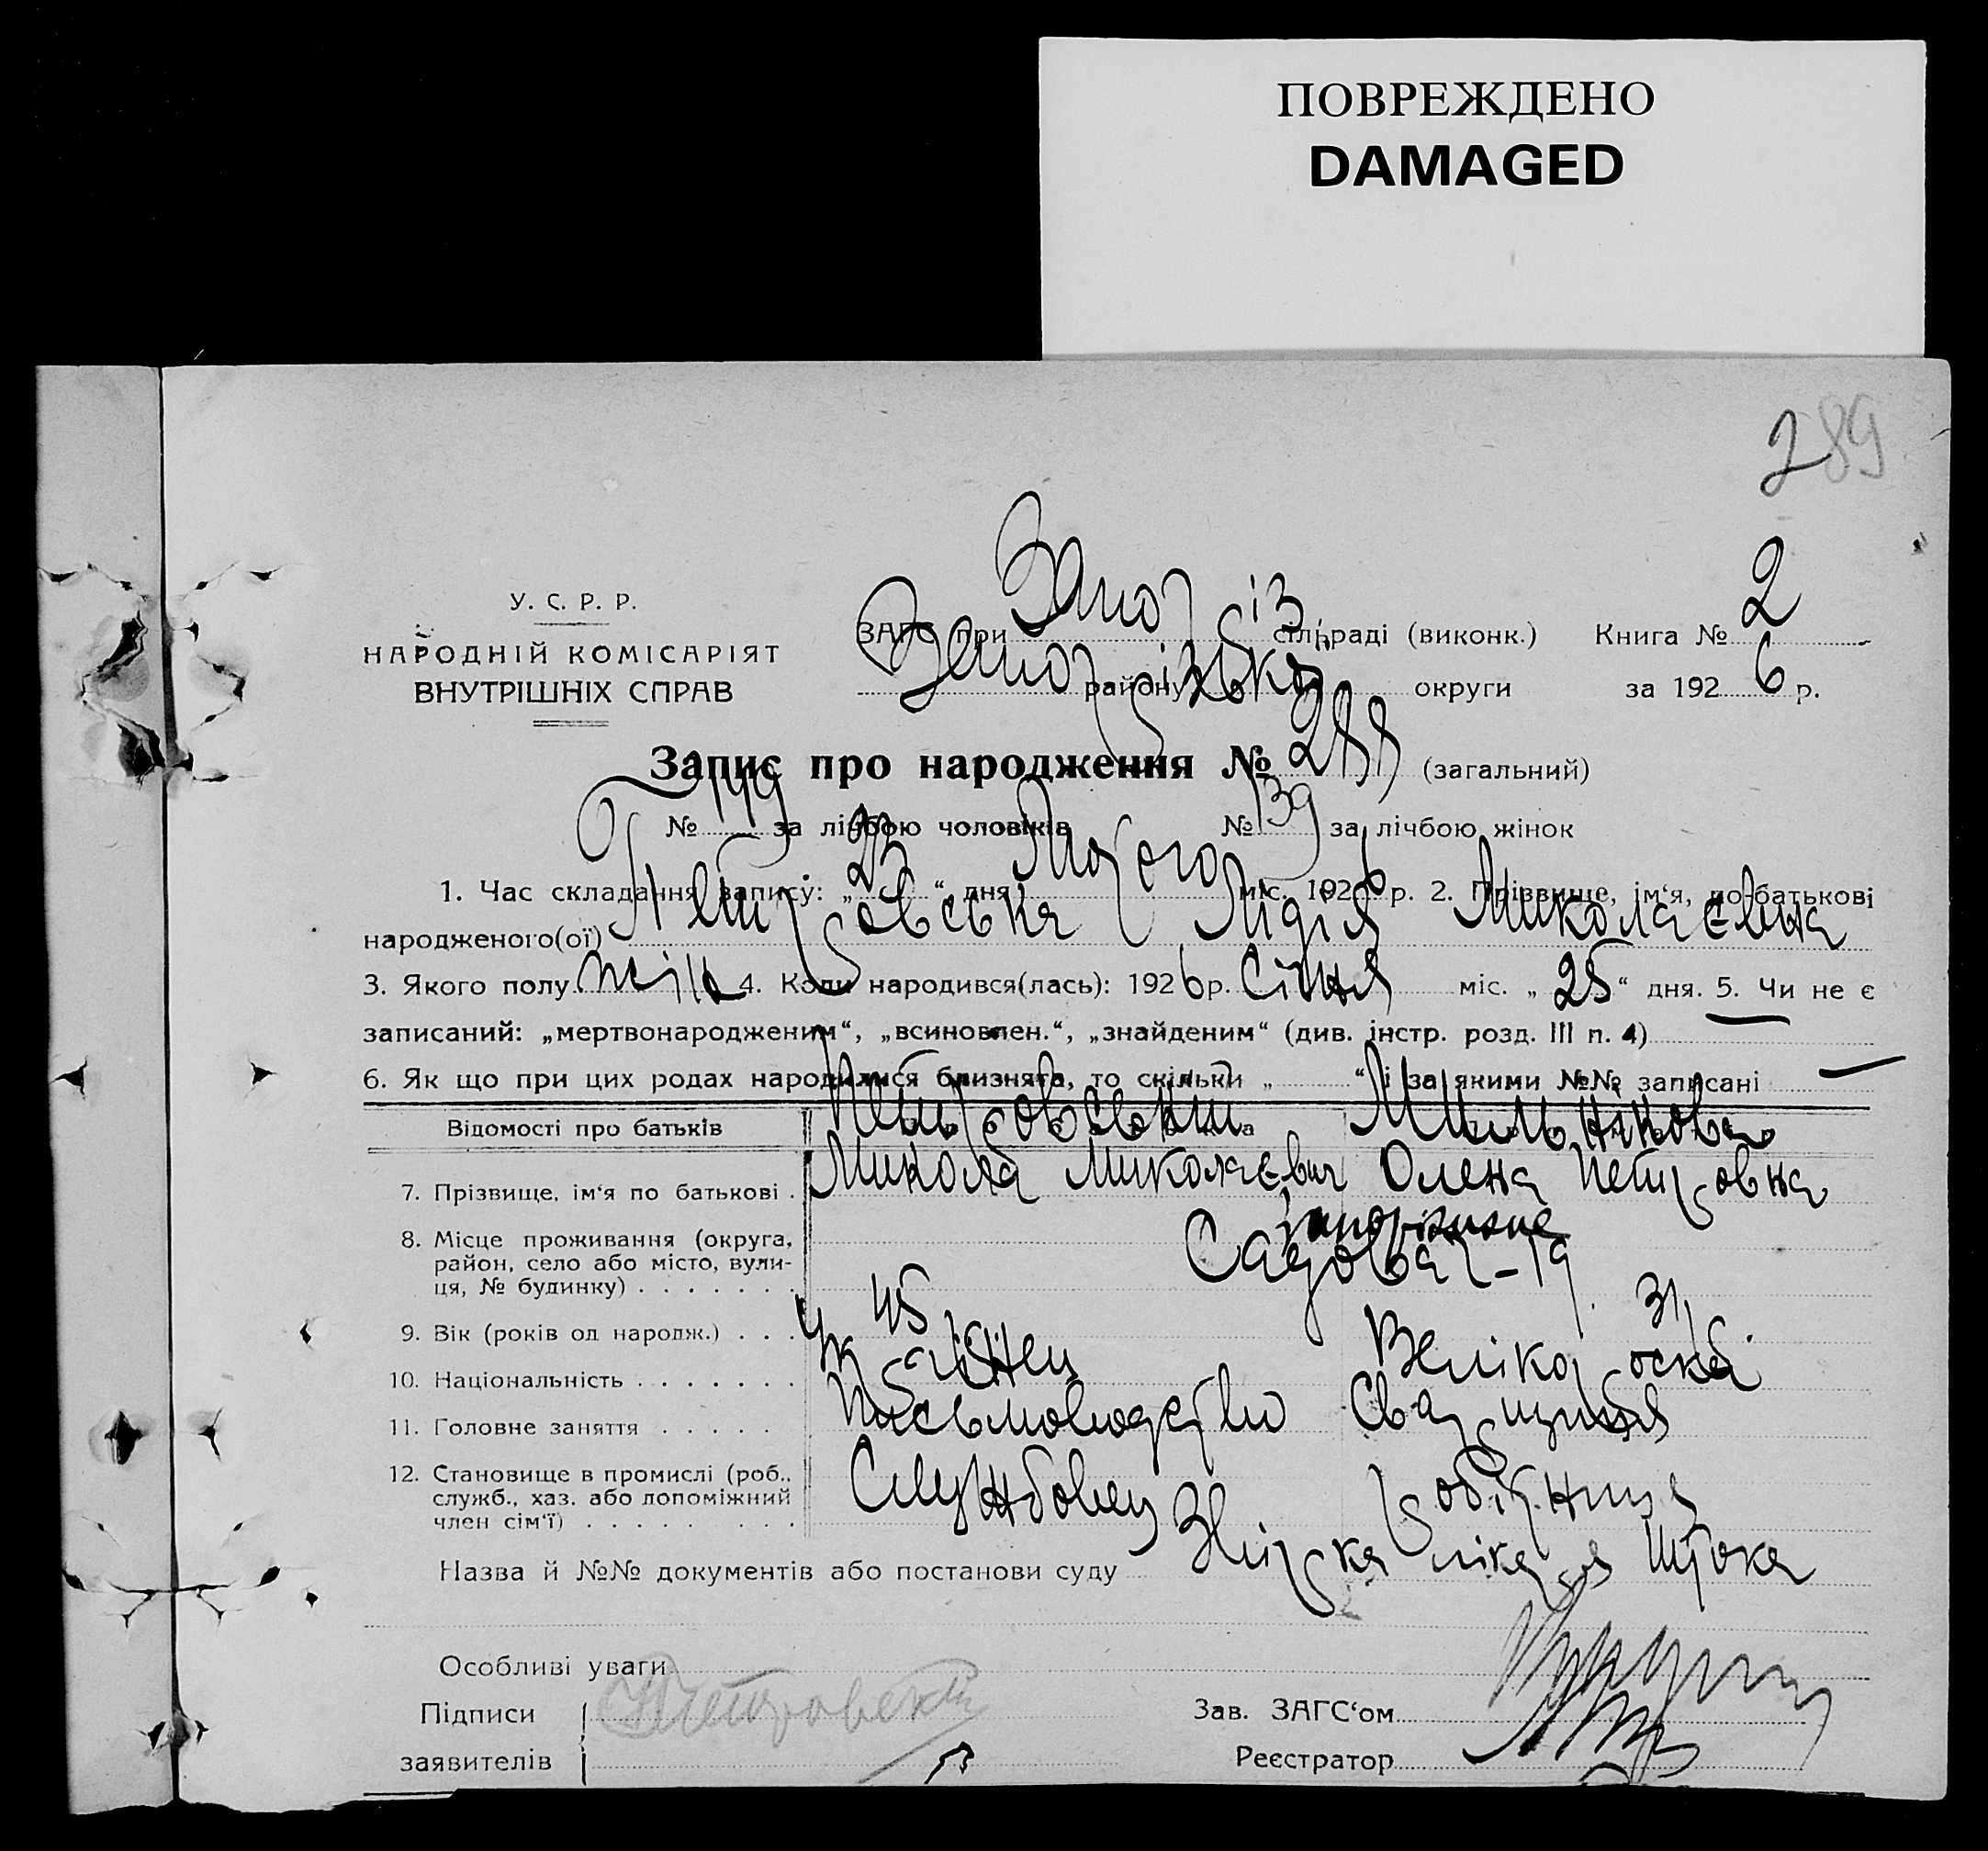 ПОВРЕЖДЕНО
DAMAGED
289
У. С. Р. Р.
НАРОДНІЙ КОМІСАРІЯТ
ВНУТРІШНІХ СПРАВ
ЗАГС при Запоріз. сільраді (виконк.) Книга № 2
Запорізької району округи за 1926 р.
Запис про народження № 288 (загальний)
№ за лічбою чоловіків № 139 за лічбою жінок
1. Час складання запису: „23“ дня Лютого міс. 1926 р. 2. Прізвище, ім‘я, по-батькові
народженого(ої) Петровська Лідія Миколаєвна
3. Якого полу жін. 4. Коли народився(лась): 1926 р. Січня міс. „25“ дня. 5. Чи не є
записаний: „мертвонародженим“, „всиновлен.“, „знайденим“ (див. інстр. розд. III п. 4)
6. Як що при цих родах народилися близнята, то скільки „ “ і за якими №№ записані —
Відомості про батьків
Петровський Мильнікова
7. Прізвище, ім‘я по батькові . Микола Миколаєвич Олена Петровна
8. Місце проживання (округа,
район, село або місто, вули-
ця, № будинку) . . . . . . . Садовая - 19
9. Вік (років од народж.) . . . 45 31
10. Національність . . . . . . . Українец Великороска
11. Головне заняття . . . . . Письмоводство
12. Становище в промислі (роб.,
служб., хаз. або допоміжний
член сім‘ї) . . . . . . . . Службовец робітниця
Назва й №№ документів або постанови суду лікаря
Особливі уваги
Підписи Петровский Зав. ЗАГС‘ом
заявителів Реєстратор